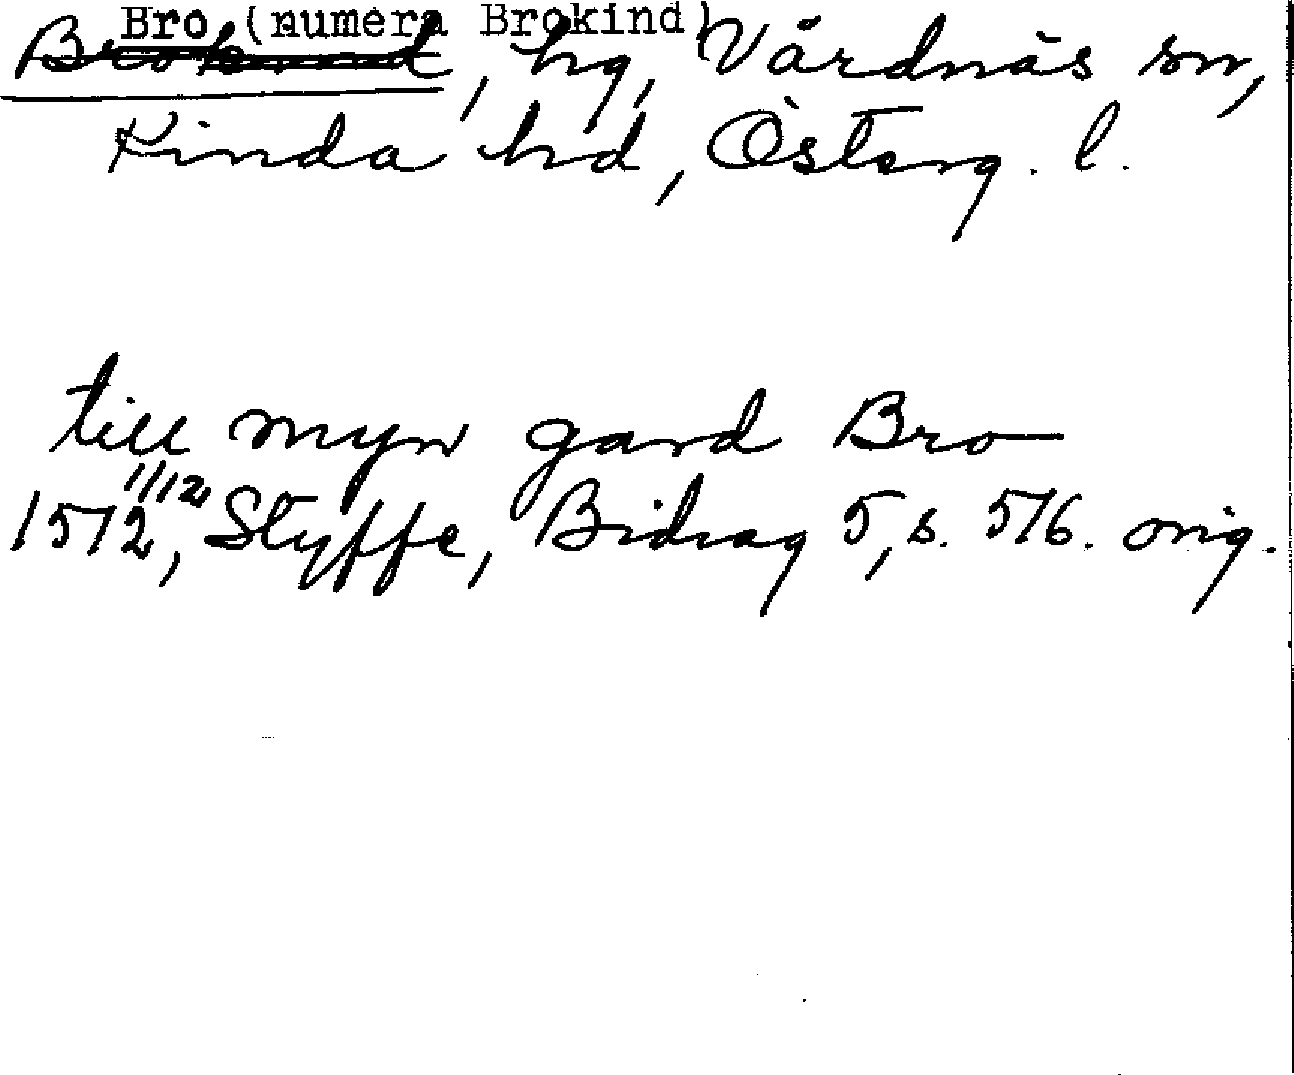 Bro (numera Brokind)
Brokind, hg, Vårdnäs sn,
Kinda hd, Österg. l.
till myn gard Bro
1512 1/12, Styffe, Bidrag 5, s. 516. orig.